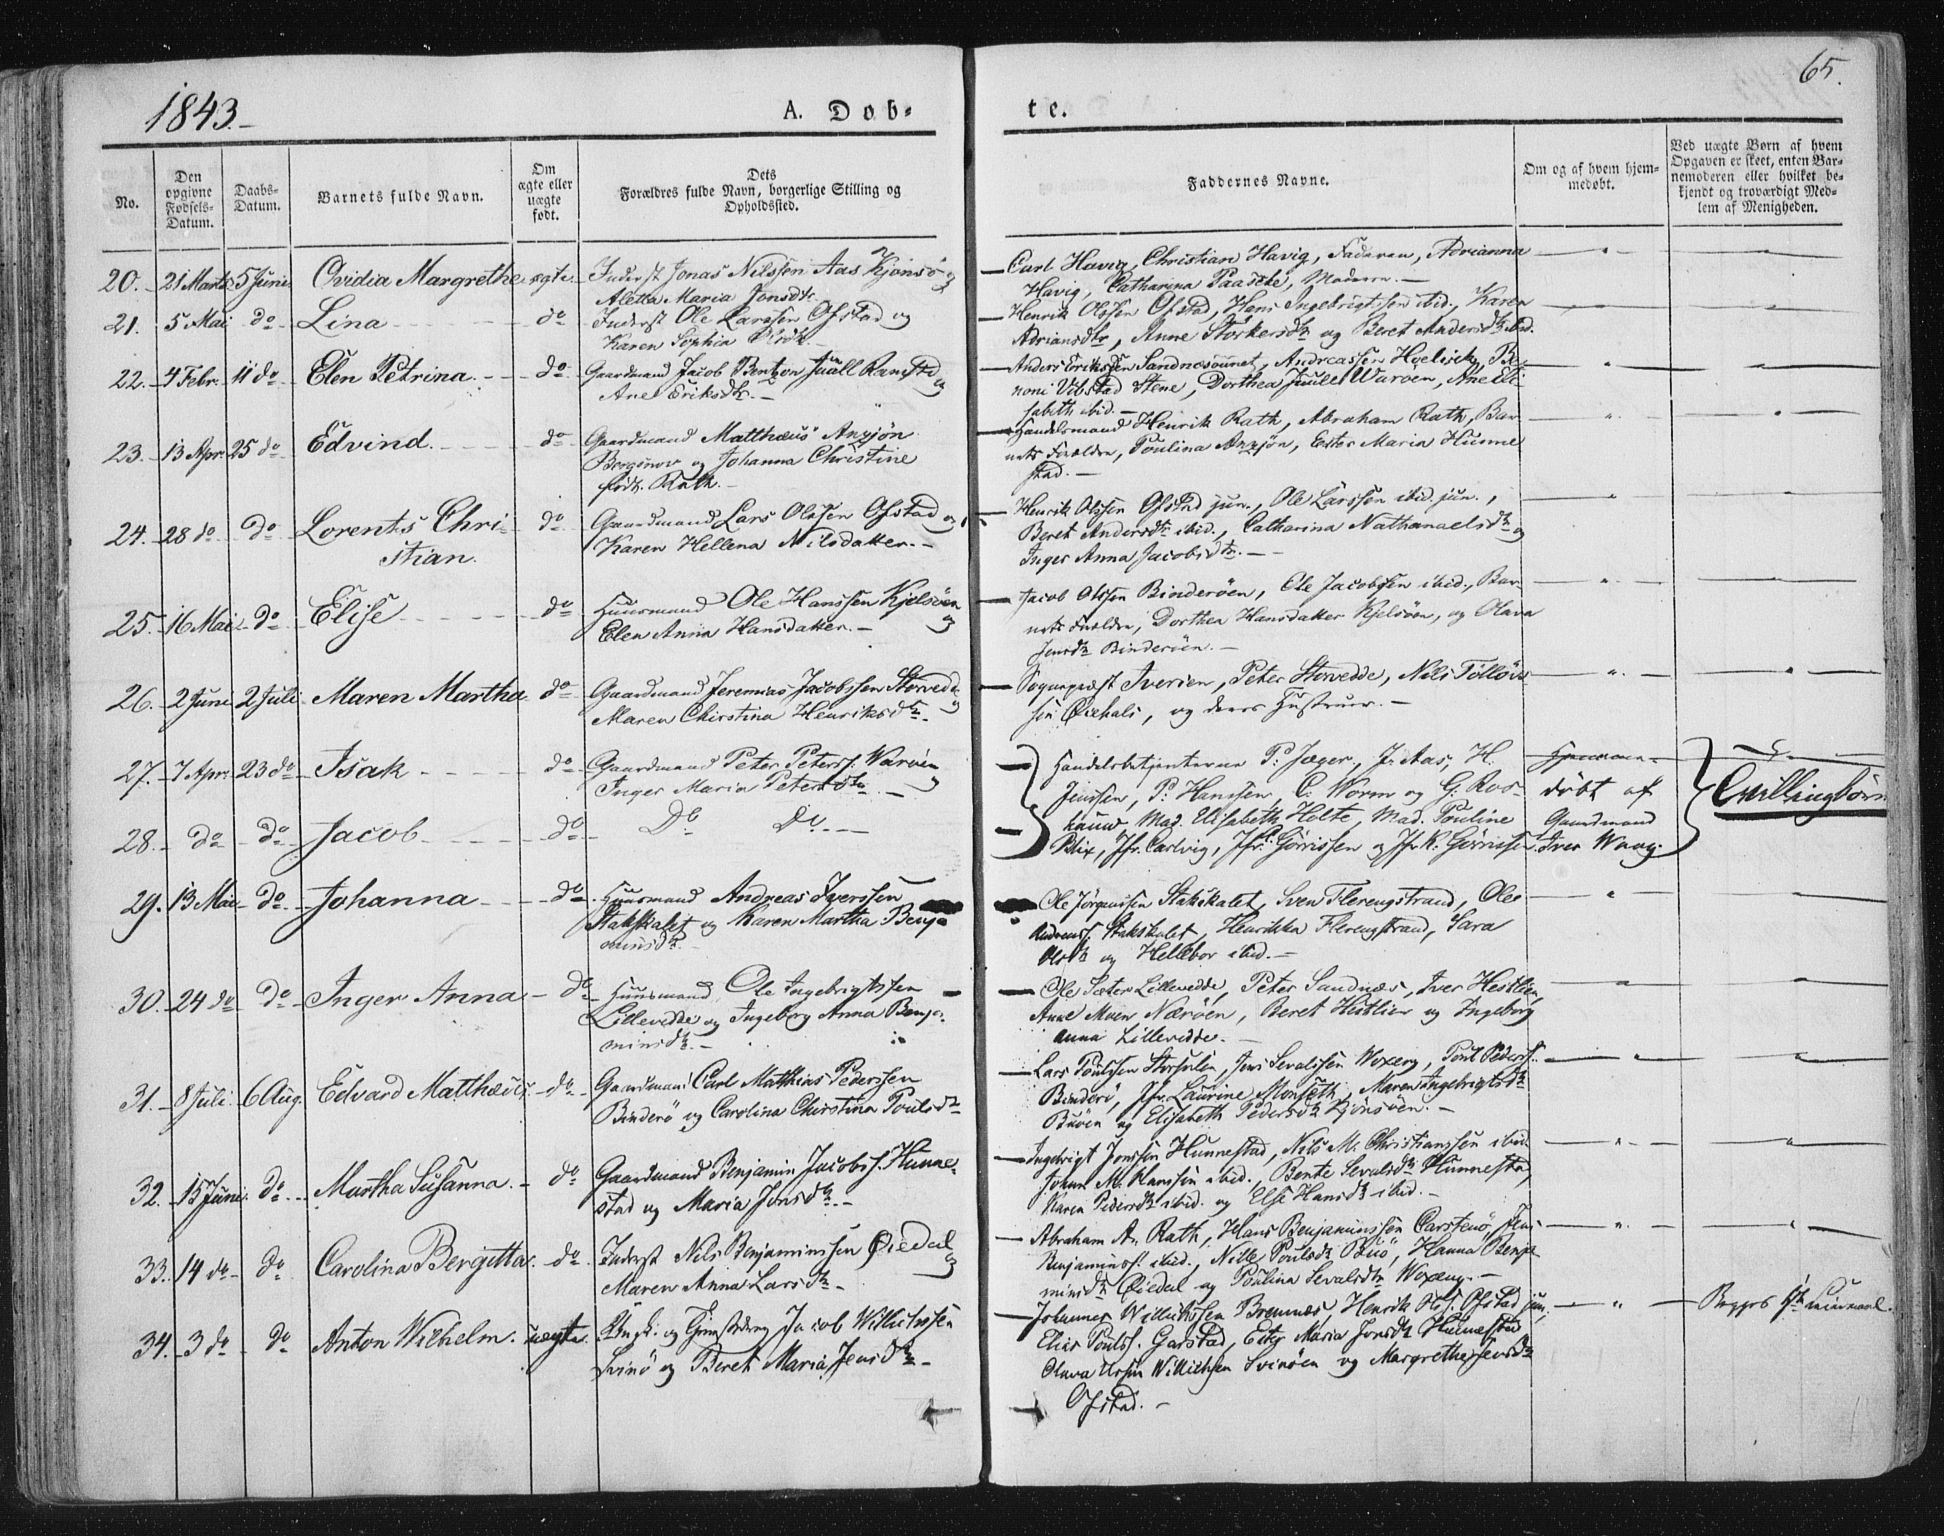 1843.
A. Døb-
te.
65.
No.
Den opgivne Fødsels-Datum.
Daabs-Datum.
Barnets fulde Navn.
Om ægte eller uægte født.
Dets Forældres fulde Navn, borgerlige Stilling og Opholdssted.
Faddernes Navne.
Om og af hvem hjem-
medøbt.
Ved uægte Børn af hvem
Opgaven er skeet, enten Bar-
nemoderen eller hvilket be-
kjendt og troværdigt Med-
lem af Menigheden.
20. 21 Marts 5 Juni Ovidia Margrethe ægte Inderst Jonas Nilssen Aas Kjønsø og
Aletta Maria Jonsdtr
Carl Havig, Christian Havig, Faderen, Adrianna
Havig, Catharina Paasche, Moderen.
21. 5 Mai do Lina do Inderst Ole Larssen Ofstad og
Karen Sophia
Henrik Olssen Ofstad, Hans Ingebrigtssen ibid., Karen
Adriansdtr, Anne Storkersdtr og Beret Andersdtr ibid.
22. 4 Febr. 11 do Elen Petrina do Gaardmand Jacob Bentzon Juull Ramstad og
Ane Eriksdtr.
Anders Erikssen Sandnæsaunet, Andreas Hoelvik, Be-
noni Vibstad Stene, Dorthea Juul Warøen, Ane Eli-
sabeth ibid.
23. 13 Apr. 25 do Edvind. do Gaardmand Matthæus Anzjøn
Bergsnov og Johanna Christine
født Rath.
Handelsmand Henrik Rath, Abraham Rath, Bar-
nets Forældre, Poulina Anzjøn, Ester Maria Hunne
stad.
24. 28 do do Lorents Chri-
stian.
do Gaardmand Lars Olssen Ofstad og
Karen Hellena Nilsdatter.
Henrik Olssen Ofstad jun., Ole Larssen ibid. jun.,
Beret Andersdtr ibid., Catharina Nathanaelsdtr og
Inger Anna Jacobsdtr.
25. 16 Mai do Elise do Huusmand Ole Hanssen Kjelsøen og
Elen Anna Hansdatter.
Jacob Olssen Binderøen, Ole Jacobssen ibid., Bar-
nets Forældre, Dorthea Hansdatter Kjelsøen, og Olava
Jensdtr Binderøen.
26. 2 Juni 2 Juli Maren Martha do Gaardmand Jeremias Jacobssen Storvedde og
Maren Christina Henriksdtr.
Sognepræst Iversen, Peter Storvedde, Nils Tøllev-
sen Øiehals, og deres Hustruer.
27. 7 Apr. 23 do Isak do Gaardmand Peter Peters. Warøen og
Inger Maria Petersdtr
28. do do Jacob do Do Do
Handelsbetjenterne P. Jæger, J. Aas, H.
Jenssen, P. Hanssen, C. Worm og G. Ros-
, Mad. Elisabeth Holte, Mad. Pouline
Blix, Jfr. Carlvig, Jfr. Gørrissen og Jfr. K. Gørrissen.
døbt af
Gaardmand
Iver Waag.
Tvillingbørn
29. 13 Mai do Johanna do Huusmand Andreas Iverssen
Stakskalet og Karen Martha Benja-
minsdtr.
Ole Jørgenssen Stakskalet, Sven Flerengstrand, Ole
Andreass. Stakskalet, Henrikka Flerengstrand, Sara
Olsdtr og Hellebor ibid.
30. 24 do do Inger Anna do Huusmand Ole Ingebrigtssen
Lillevedde og Ingeborg Anna Benja-
minsdtr.
Ole Sæter Lillevedde, Peter Sandnæs, Iver Hestlien,
Anne Moen Nærøen, Beret Hestlien og Ingeborg
Anna Lillevedde.
31. 8 Juli 6 Aug. Edvard Matthæus do Gaardmand Carl Mathias Pederssen
Binderø og Carolina Christina Poulsdtr
Lars Poulssen Storsulen, Jens Sevalssen Woxeng, Poul Peders.
Binderø, Jfr. Laurine Monseth, Maren Ingebrigtsdtr
Buøen og Elisabeth Pedersdtr Kjønsøen.
32. 15 Juni do Martha Susanna do Gaardmand Benjamin Jacobs. Hunne-
stad og Maria Jonsdtr
Ingebrigt Jonssen Hunnestad, Nils M. Christianssen ibid.
Johan M. Hanssen ibid., Bente Sevalsdtr Hunnestad,
Karen Pedersdtr ibid. og Else Hansdtr ibid.
33. 14 do do Carolina Bergitta do Inderst Nils Benjaminssen Øiedal og
Maren Anna Larsdtr
Abraham A. Rath, Hans Benjaminssen Carstenø, Jens
Benjamins. ibid., Nille Poulsdtr Buø, Hanna Benja-
minsdtr Øiedal og Poulina Sevalsdtr Woxeng.
34. 3 do do Anton Wilhelm. uægte Ungk. og Jacob Willichssen
Svinø og Beret Maria Jensdtr
Johannes Willichssen Bremnæs, Henrik Ols. Ofstad jun.,
Elias Pouls. Garstad, Maria Jonsdtr Hunnestad
Olava Willichsen Svinøen og Margrethe Jensdtr
Ofstad.
Begges